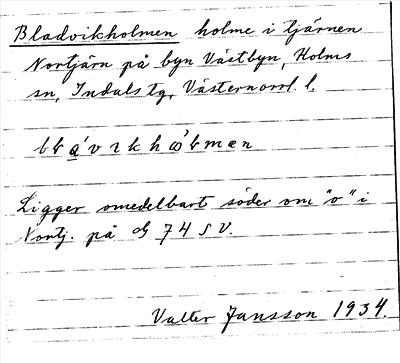 Bladvikholmen holme i tjärnen
Nortjärn på byn Västbyn, Holms
sn, Indals tg, Västernorrl. l.
Ligger omedelbart söder om "o" i
Nortj. på 74 SV.
Valter Jansson 1934.